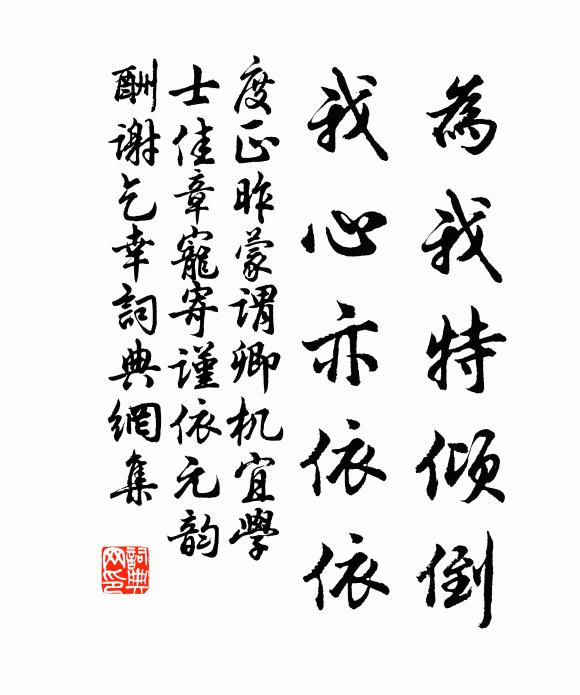 為我特傾倒
我心亦依依
度正昨蒙謂卿机宜學
士佳章寵寄謹依元韵
酬谢乞幸詞典網集
詞典网印